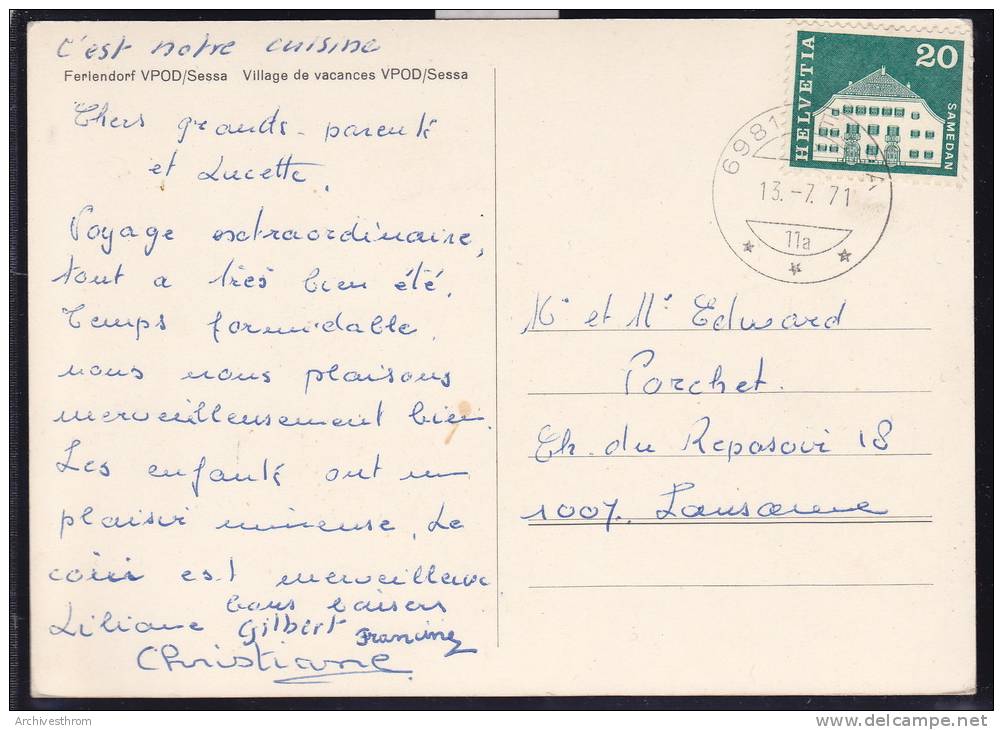 c'est notre cuisine
Feriendorf VPOD/Sessa Village de vacances VPOD/Sessa
Chers grands-parents
et Lucette,
Voyage extraordinaire,
tout a très bien été.
Temps formidable
nous nous plaisons
merveilleusement bien.
Les enfants ont un
plaisir immense. Le
coin est merveilleux
bons baisers
Liliane Gilbert Francine
Christiane
HELVETIA
20
SAMEDAN
6981
13.-7.71
11a
Mr et Me Edward
Porchet.
Ch. du Reposoir 18
1007. Lausanne
Archivesthrom
www.delcampe.net